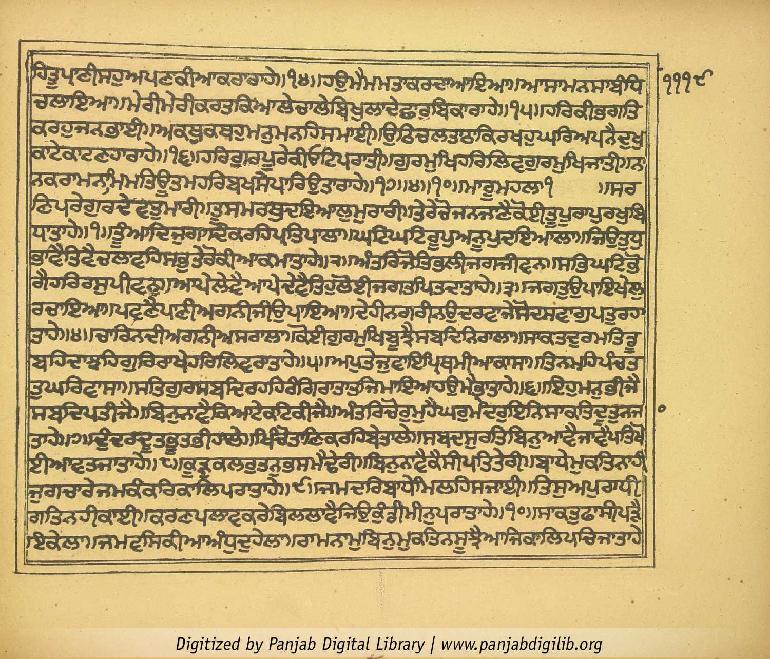 ਹਿਤੁਪਾਣੀਸਹੁਅਪਣਕੀਆਕਰਾਰਾਹੇ॥੧੪॥ਹਉਮੈਮਮਤਾਕਰਦਾਆਇਆ॥ਆਸਾਮਨਸਾਬੰਧਿ
ਚਲਾਇਆ॥ਮੇਰੀਮੇਰੀਕਰਤਕਿਆਲੇਚਾਲੇਬਿਖੁਲਾਦੇਛਾਰਬਿਕਾਰਾਹੇ॥੧੫॥ਹਰਿਕੀਭਗਤਿ
ਕਰਹੁਜਨਭਾਈ॥ਅਕਥੁਕਥਹੁਮਨੁਮਨਹਿਸਮਾਈ॥ਉਠਿਚਲਤਾਠਾਕਿਰਖਹੁਘਰਿਅਪਨੈਦੁਖੁ
ਕਾਟੇਕਾਟਣਹਾਰਾਹੇ॥੧੬॥ਹਰਿਗੁਰਪੂਰੇਕੀਓਟਪਰਾਤੀ॥ਗੁਰਮੁਖਿਹਰਿਲਿਵਗੁਰਮੁਖਿਜਾਤੀ॥ਨਾ
ਨਕਰਾਮਨਾਮਿਮਤਿਊਤਮਹਰਿਬਖਸੇਪਾਰਿਉਤਾਰਾਹੇ॥੧੭॥੪॥੧੦॥ਮਾਰੂਮਹਲਾ੧ ॥ਸਰ
ਣਿਪਰੇਗੁਰਦੇਵਤੁਮਾਰੀ॥ਤੂਸਮਰਥੁਦਇਆਲੁਮੁਰਾਰੀ॥ਤੇਰੇਚੋਜਨਜਾਣੈਕੋਈਤੂਪੂਰਾਪੁਰਖੁਬਿ
ਧਾਤਾਹੇ॥੧॥ਤੂਆਦਿਜੁਗਾਦਿਕਰਹਿਪ੍ਰਤਿਪਾਲਾ॥ਘਟਿਘਟਿਰੂਪੁਅਨੂਪੁਦਇਆਲਾ॥ਜਿਉਤੁਧੁ
ਭਾਵੈਤਿਵੈਚਲਾਵਹਿਸਭੁਤੇਰੋਕੀਆਕਮਾਤਾਹੇ॥੨॥ਅੰਤਰਿਜੋਤਿਭਲੀਜਗਜੀਵਨ॥ਸਭਿਘਟਭੋ
ਗੈਹਰਿਰਸੁਪੀਵਨ॥ਆਪੇਲੇਵੈਆਪੇਦੇਵੈਤਿਹੁਲੋਈਜਗਤਪਿਤਦਾਤਾਹੇ॥੩॥ਜਗਤੁਉਪਾਇਖੇਲੁ
ਰਚਾਇਆ॥ਪਵਣੈਪਾਣੀਅਗਨੀਜੀਉਪਾਇਆ॥ਦੇਹੀਨਗਰੀਨਉਦਰਵਾਜੇਸੋਦਸਵਾਗੁਪਤੁਰਹਾ
ਤਾਹੇ॥੪॥ਚਾਰਿਨਦੀਅਗਨੀਅਸਰਾਲਾ॥ਕੋਈਗੁਰਮੁਖਿਬੂਝੈਸਬਦਿਨਿਰਾਲਾ॥ਸਾਕਤਦੁਰਮਤਿਡੂ
ਬਹਿਦਾਝਹਿਗੁਰਿਰਾਖੇਹਰਿਲਿਵਰਾਤਾਹੇ॥੫॥ਅਪੁਤੇਜੁਵਾਇਪ੍ਰਿਥਮੀਆਕਾਸਾ॥ਤਿਨਮਹਿਪੰਚਤ
ਤੁਘਰਿਵਾਸਾ॥ਸਤਿਗੁਰਸਬਦਿਰਹਹਿਰੰਗਿਰਾਤਾਤਜਿਮਾਇਆਹਉਮੈਭ੍ਰਾਤਾਹੇ॥੬॥ਇਹੁਮਨੁਭੀਜੈ
ਸਬਦਿਪਤੀਜੈ॥ਬਿਨੁਨਾਵੈਕਿਆਟੇਕਟਿਕੀਜੈ॥ਅੰਤਰਿਚੋਰੁਮੁਹੈਘਰੁਮੰਦਰੁਇਨਿਸਾਕਤਿਦੂਤੁਨਜਾ
ਤਾਹੇ॥੭॥ਦੁੰਦਰਦੂਤਭੂਤਭੀਹਾਲੇ॥ਖਿੰਚੋਤਾਣਿਕਰਹਿਬੇਤਾਲੇ॥ਸਬਦਸੁਰਤਿਬਿਨੁਆਵੈਜਾਵੈਪਤਿਖੋ
ਈਆਵਤਜਾਤਾਹੇ॥੮॥ਕੂੜੁਕਲਰੁਤਨੁਭਸਮੈਢੇਰੀ॥ਬਿਨੁਨਾਵੈਕੈਸੀਪਤਿਤੇਰੀ॥ਬਾਧੇਮੁਕਤਿਨਾਹੀ
ਜੁਗਚਾਰੇਜਮਕੰਕਰਿਕਾਲਿਪਰਾਤਾਹੇ॥੯॥ਜਮਦਰਿਬਾਧੇਮਿਲਹਿਸਜਾਈ॥ਤਿਸੁਅਪਰਾਧੀ
ਗਤਿਨਹੀਕਾਈ॥ਕਰਣਪਲਾਵਕਰੇਬਿਲਲਾਵੈਜਿਉਕੁੰਡੀਮੀਨੁਪਰਾਤਾਹੇ॥੧੦॥ਸਾਕਤੁਫਾਸੀਪੜੈ
ਇਕੇਲਾ॥ਜਮਵਸਿਕੀਆਅੰਧੁਦੁਹੇਲਾ॥ਰਾਮਨਾਮਬਿਨੁਮੁਕਤਿਨਸੂਝੈਆਜਿਕਾਲਿਪਚਿਜਾਤਾਹੇ
੧੧੧੯
Digitized by Panjab Digital Library | www.panjabdigilib.org